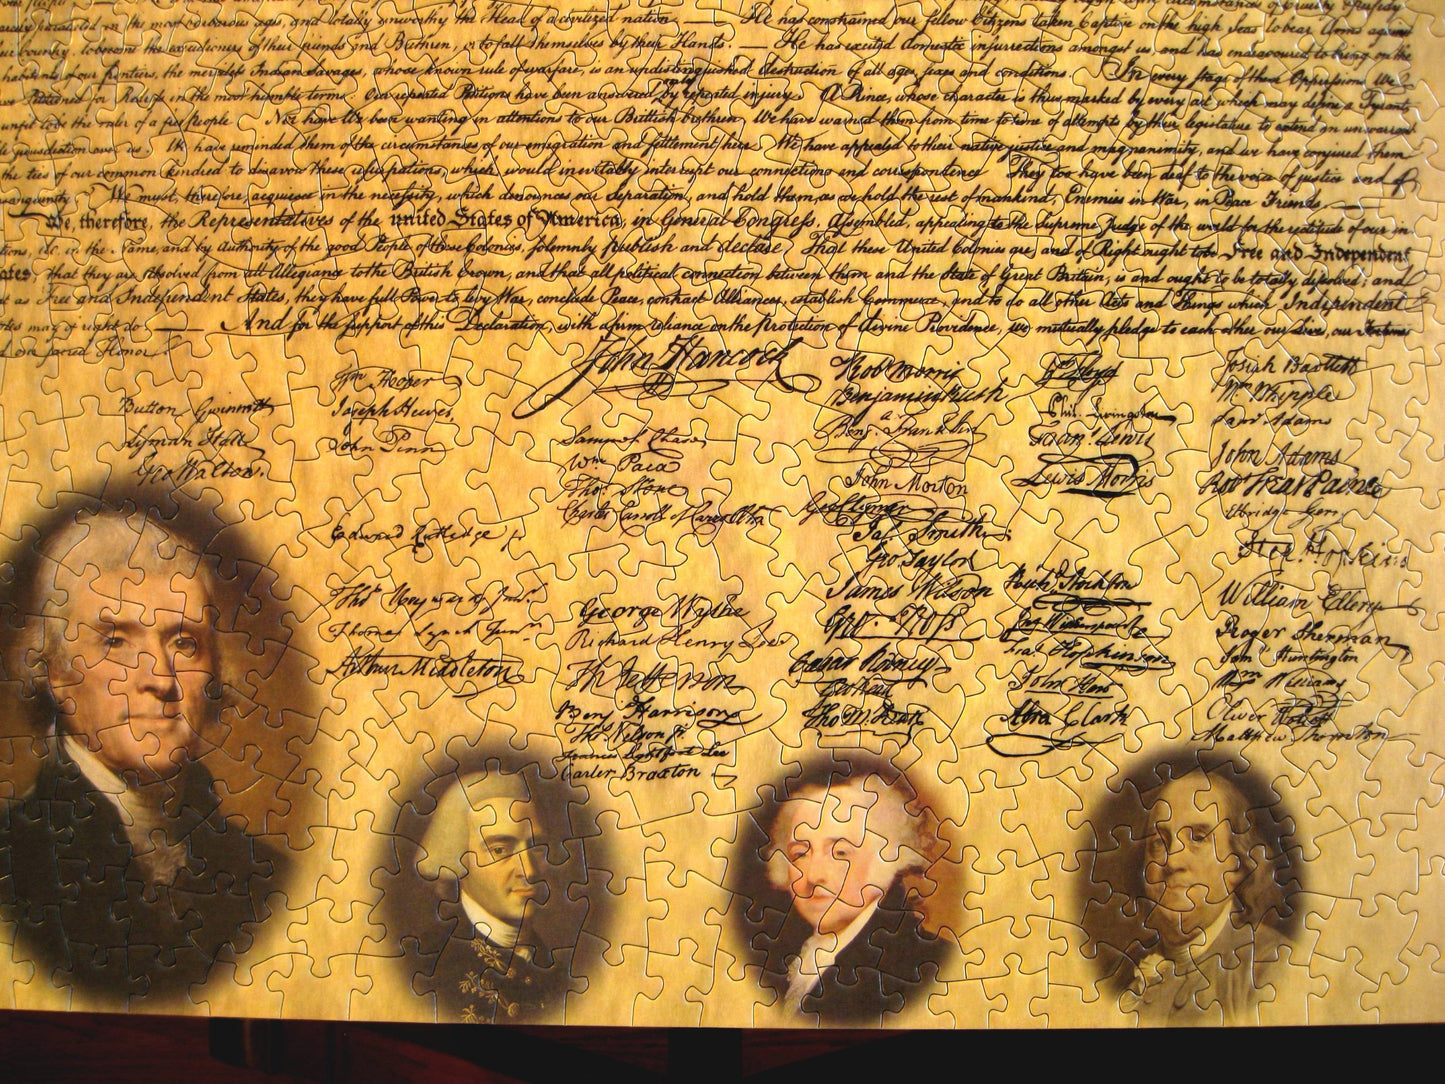 He has constrained our fellow Citizens taken Captive on the high Seas to bear Arms against
their Country, to become the executioners of their friends and Brethren, or to fall themselves by their Hands. — He has excited domestic insurrections amongst us, and has endeavoured to bring on the
habitants of our frontiers, the merciless Indian Savages, whose known rule of warfare, is an undistinguished destruction of all ages, sexes and conditions. In every stage of these Oppressions We
Petitioned for Redress in the most humble terms: Our repeated Petitions have been answered by repeated injury. A Prince, whose character is thus marked by every act which may define a Tyrant,
unfit to be the ruler of a free People. Nor have We been wanting in attentions to our Brittish brethren. We have warned them from time to time of attempts by their legislature to extend an unwarrant
jurisdiction over us. We have reminded them of the circumstances of our emigration and settlement here. We have appealed to their native justice and magnanimity, and we have conjured them
the ties of our common kindred to disavow these usurpations, which, would inevitably interrupt our connections and correspondence They too have been deaf to the voice of justice and of
We must, therefore, acquiesce in the necessity, which denounces our Separation, and hold them, as we hold the rest of mankind, Enemies in War, in Peace Friends. —
We, therefore, the Representatives of the united States of America, in General Congress, Assembled, appealing to the Supreme Judge of the world for the rectitude of our in
tions, do, in the Name, and by Authority of the good People of these Colonies, solemnly publish and declare, That these United Colonies are, and of Right ought to be Free and Independent
ates; that they are Absolved from all Allegiance to the British Crown, and that all political connection between them and the State of Great Britain, is and ought to be totally dissolved; and
t as Free and Independent States, they have full Power to levy War, conclude Peace, contract Alliances, establish Commerce, and to do all other Acts and Things which Independent
may of right do. — And for the support of this Declaration, with a firm reliance on the Protection of divine Providence, we mutually pledge to each other our Lives, our Fortunes
d our sacred Honor.
John Hancock
Button Gwinnett
Lyman Hall
Geo Walton.
Wm Hooper
Joseph Hewes,
John Penn
Edward Rutledge
Thos Heyward Junr.
Thomas Lynch Junr.
Arthur Middleton
Samuel Chase
Wm. Paca
Thos. Stone
Charles Carroll of Carrollton
George Wythe
Richard Henry Lee
Th Jefferson
Benj Harrison
Thos Nelson jr.
Francis Lightfoot Lee
Carter Braxton
Robt Morris
Benjamin Rush
Benj. Franklin
John Morton
Geo Clymer
Jas. Smith
Geo. Taylor
James Wilson
Geo. Ross
Caesar Rodney
Geo Read
Tho M:Kean
Phil. Livingston
Frans. Lewis
Lewis Morris
Richd. Stockton
Jno Witherspoon
Fras. Hopkinson
John Hart
Abra Clark
Josiah Bartlett
Wm. Whipple
Saml Adams
John Adams
Robt Treat Paine
Elbridge Gerry
Step. Hopkins
William Ellery
Roger Sherman
Saml Huntington
Wm Williams
Oliver Wolcott
Matthew Thornton